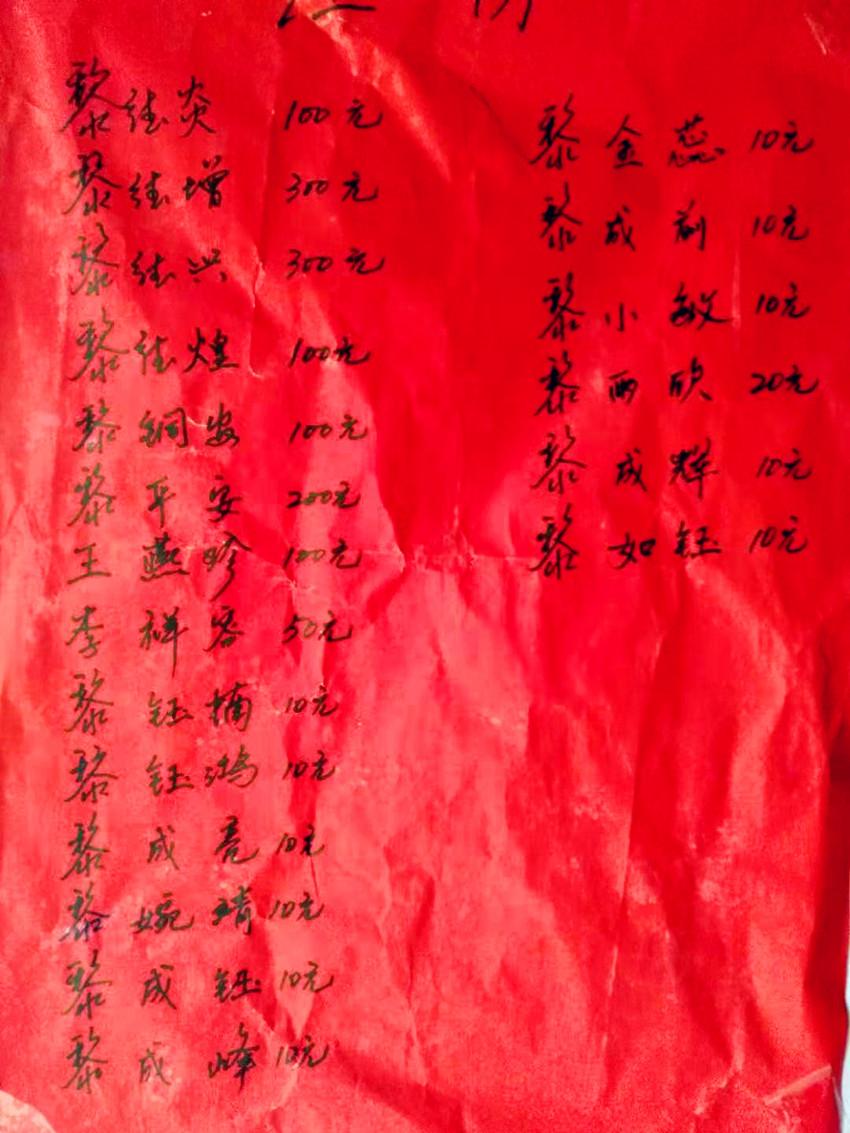 黎炎 100元
黎增 300元
黎兴 300元
黎煌 100元
黎铜安 100元
黎平安 200元
王燕珍 100元
李祥容 50元
黎钰楠 10元
黎钰鸿 10元
黎成亮 10元
黎婉靖 10元
黎成钰 10元
黎成峰 10元
黎金蕊 10元
黎成 10元
黎小敏 10元
黎雨欣 20元
黎成辉 10元
黎如钰 10元